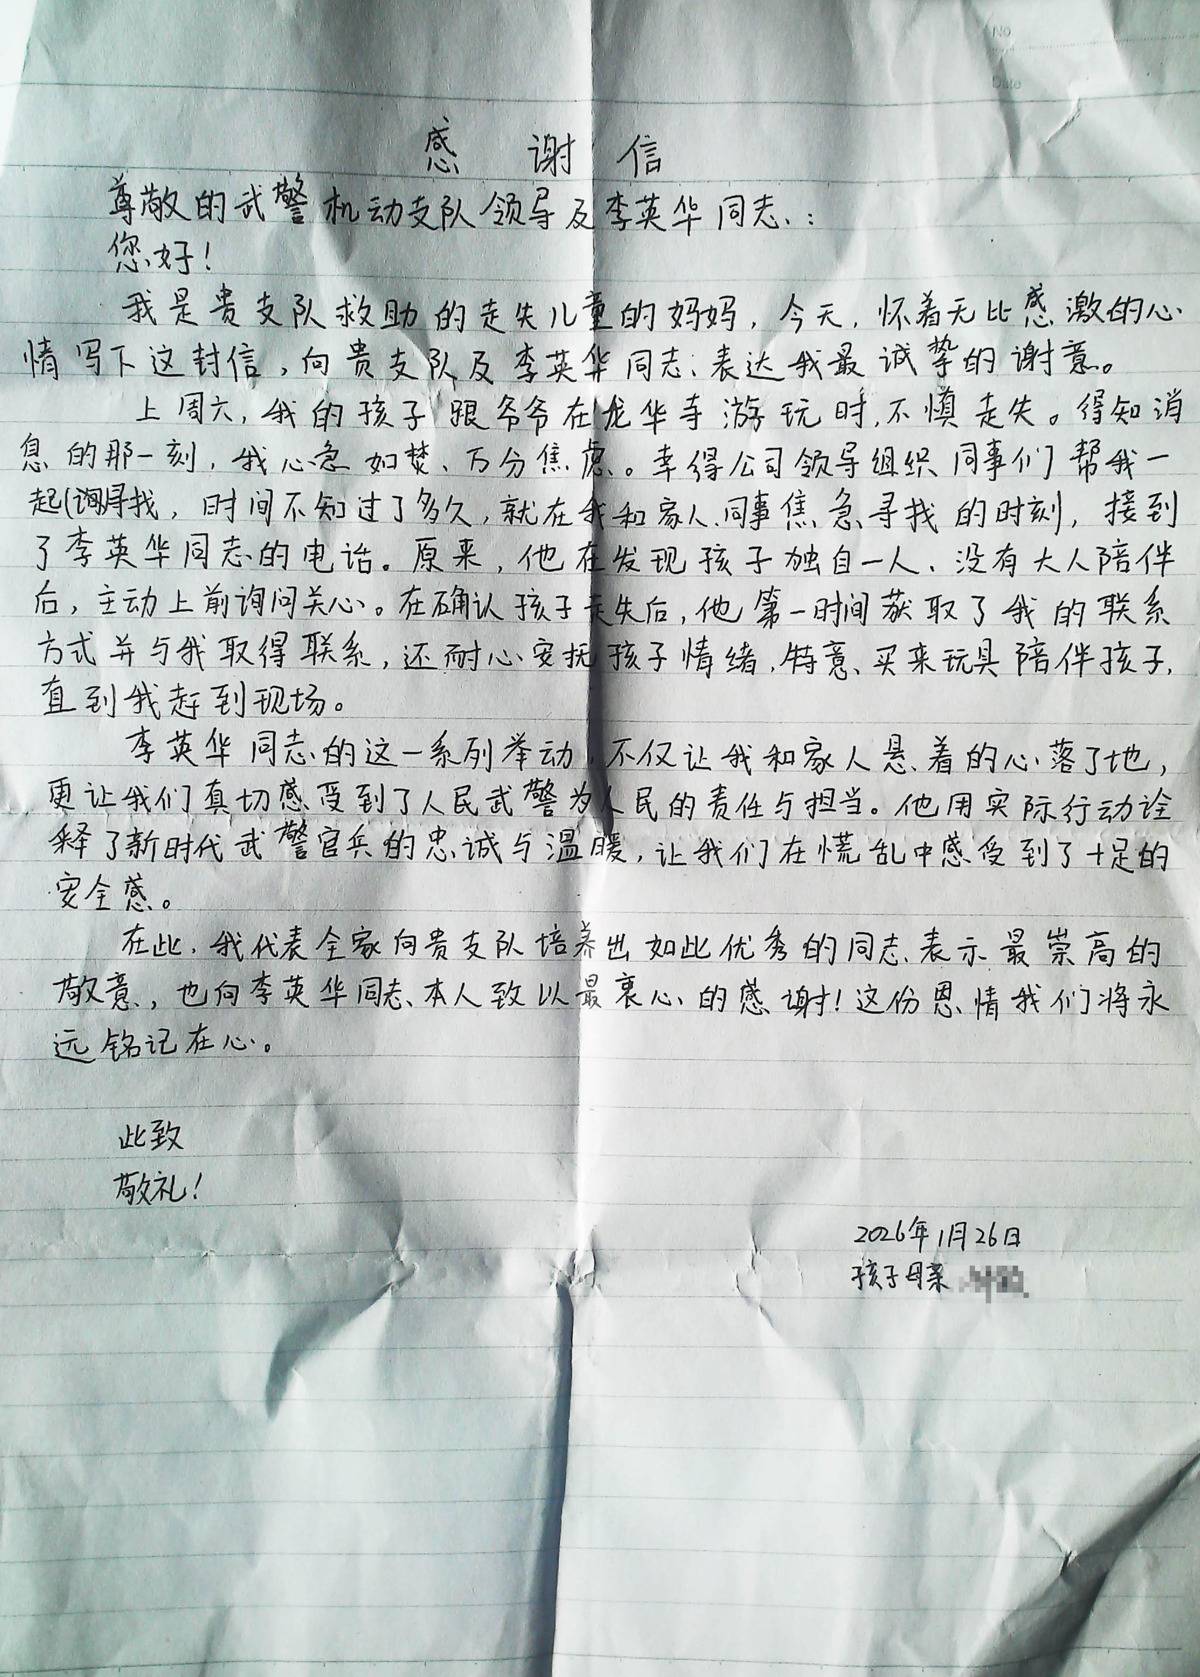 No
Date
感谢信
尊敬的武警机动支队领导及李英华同志：
您好！
我是贵支队救助的走失儿童的妈妈，今天，怀着无比感激的心
情写下这封信，向贵支队及李英华同志表达我最诚挚的谢意。
上周六，我的孩子跟爷爷在龙华寺游玩时，不慎走失。得知消
息的那一刻，我心急如焚、万分焦虑。幸得公司领导组织同事们帮我一
起寻找，时间不知过了多久，就在我和家人、同事焦急寻找的时刻，接到
了李英华同志的电话。原来，他在发现孩子独自一人、没有大人陪伴
后，主动上前询问关心。在确认孩子走失后，他第一时间获取了我的联系
方式并与我取得联系，还耐心安抚孩子情绪，特意买来玩具陪伴孩子，
直到我赶到现场。
李英华同志的这一系列举动，不仅让我和家人悬着的心落了地，
更让我们真切感受到了人民武警为人民的责任与担当。他用实际行动诠
释了新时代武警官兵的忠诚与温暖，让我们在慌乱中感受到了十足的
安全感。
在此，我代表全家向贵支队培养出如此优秀的同志表示最崇高的
敬意，也向李英华同志本人致以最衷心的感谢！这份恩情我们将永
远铭记在心。
此致
敬礼！
2026年1月26日
孩子母亲